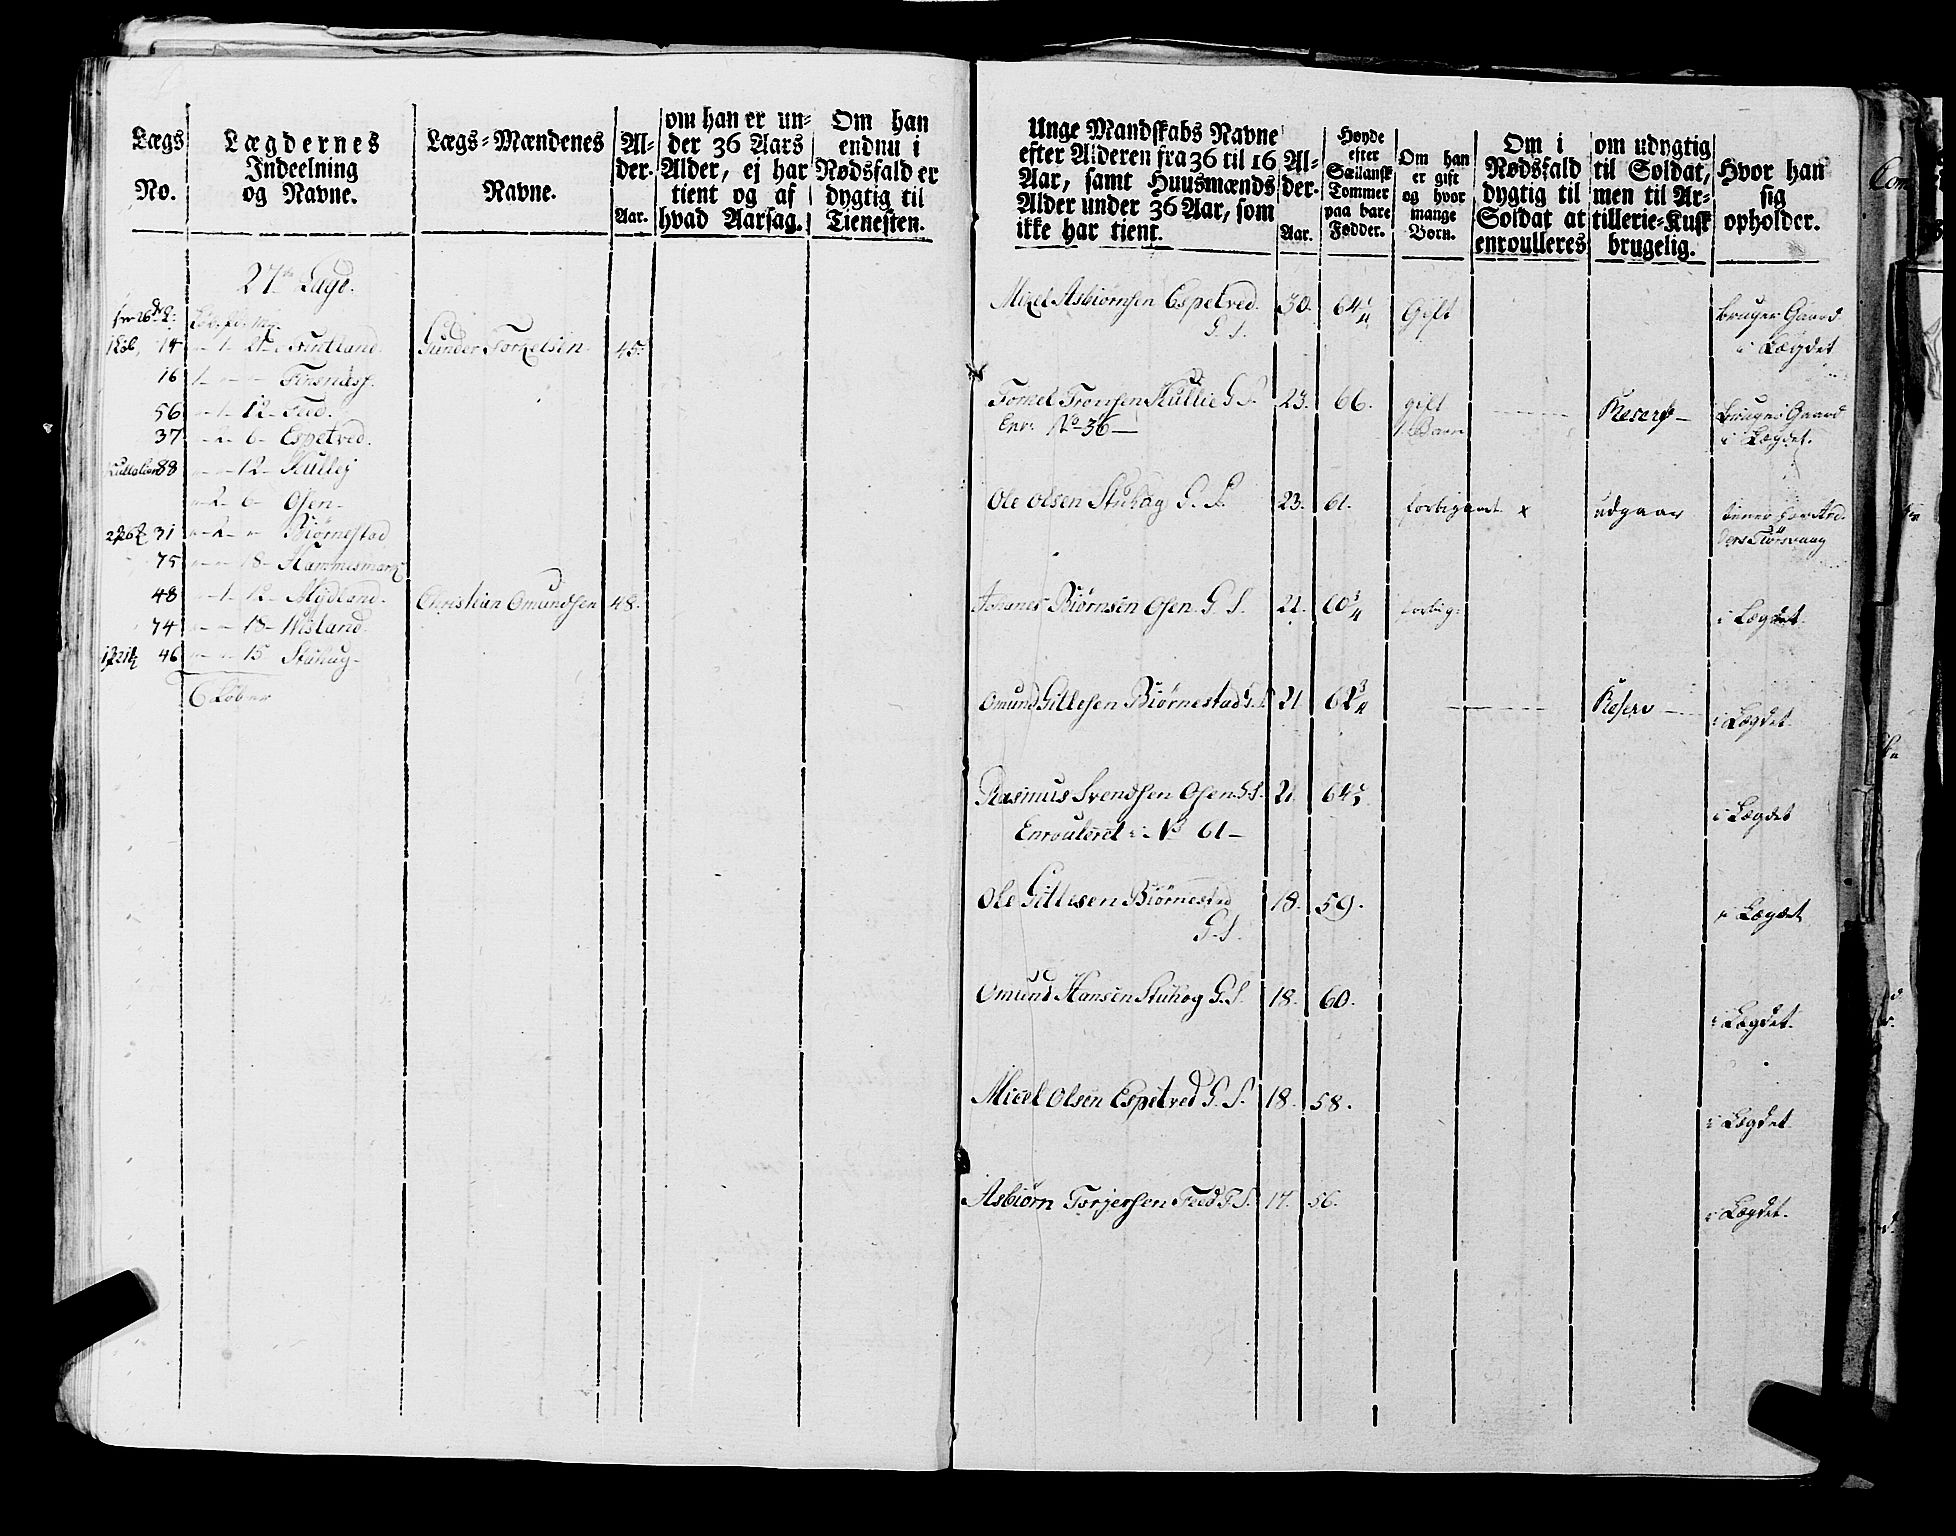 Lægs No.
Lægdernes Indeelning og Navne.
Lægs-Mændenes Navne.
Alder. Aar.
om han er under 36 Aars Alder, ej har tient og af hvad Aarsag.
Om han endnu i Nødsfald er dygtig til Tienesten.
27de Lægd.
14 - 1 - 21 - Frestland. Gunder Torkelsen. 45.
16 1 - - -
56 - 1 - 12 -
37 - 2 - 6 - Espetved.
88 - - 12 - Skulley
- 2 - 6 - Osen.
31 - 2 - - Biørnestad
75 - - 18 - Hammesmark
48 - 1 - 12 - Mydland. Christian Omundsen 48.
74 - - 18 - Wisland.
46 - - 15 - Stuhaug.
6 Løber
Unge Mandskabs Navne efter Alderen fra 36 til 16 Aar, samt Huusmænds Alder under 36 Aar, som ikke har tient.
Alder. Aar.
Høyde efter Sællansk Tommer paa bare Fødder.
Om han er gift og hvor mange Børn.
Om i Nødsfald dygtig til Soldat at enroulleres
om udygtig til Soldat, men til Artillerie-Kusk brugelig.
Hvor han sig opholder.
Mikel Asbiørnsen Espetved. 30. 64 1/4 Gift bruger Gaard
G. S. i Lægdet
Torkel Tronsen Skullie G S. 23. 66. gift Reserv - bruger Gaard
Enr: No 36 - 1 Barn i Lægdet.
Ole Olsen Stuhag G. S. 23. 61. forbigaaet x udgaar tiener hos And
ers
Johanes Biørnsen Osen. G. S. 21. 60 3/4 forbig: i Lægdet.
Omund Gillesen Biørnestad G. S. 21 62 3/4 Reserv - i Lægdet.
Rasmus Svendsen Osen G S. 21. 64 1/2 i Lægdet
Enroulleret i No 61 -
Ole Gillesen Biørnestad 18. 59. i Lægdet
G. S.
Omund Hansen Stuhog G. S. 18. 60. i Lægdet.
Mickel Olsen Espetved G. S. 18. 58. i Lægdet
Asbiørn Torjersen Feed G. S. 17. 56. i Lægdet.